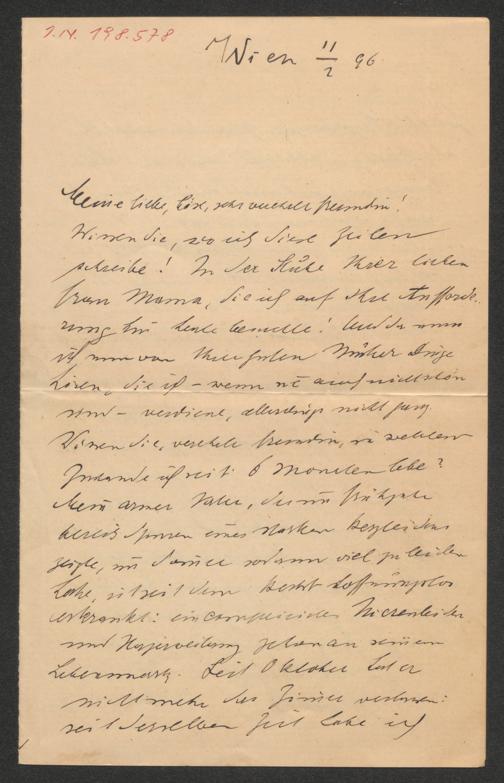 I.N. 198.578
Wien 11/2 96
Meine liebe, böse, sehr verehrte Freundin!
Wissen Sie, wo ich diese Zeilen
schreibe! In der Stube Ihrer lieben
Frau Mama, die ich auf Ihre Aufforde-
rung hin heute besuchte! Und da muss
ich nun von Ihrer guten Mutter Dinge
hören, die ich – wenn sie auch nicht schön
sind – verdiene, allerdings nicht ganz.
Wissen Sie, verehrte Freundin, in welchem
Zustande ich seit 6 Monaten lebe?
Mein armer Vater, der im Frühjahr
bereits Spuren eines starken Herzleidens
zeigte, im Sommer sodann viel zu leiden
hatte, ist seit dem Herbst hoffnungslos
erkrankt: ein Nierenleiden
und Herzerweiterung an seinem
Lebensmark. Seit Oktober hat er
nicht mehr das Zimmer verlassen:
seit derselben Zeit habe ich